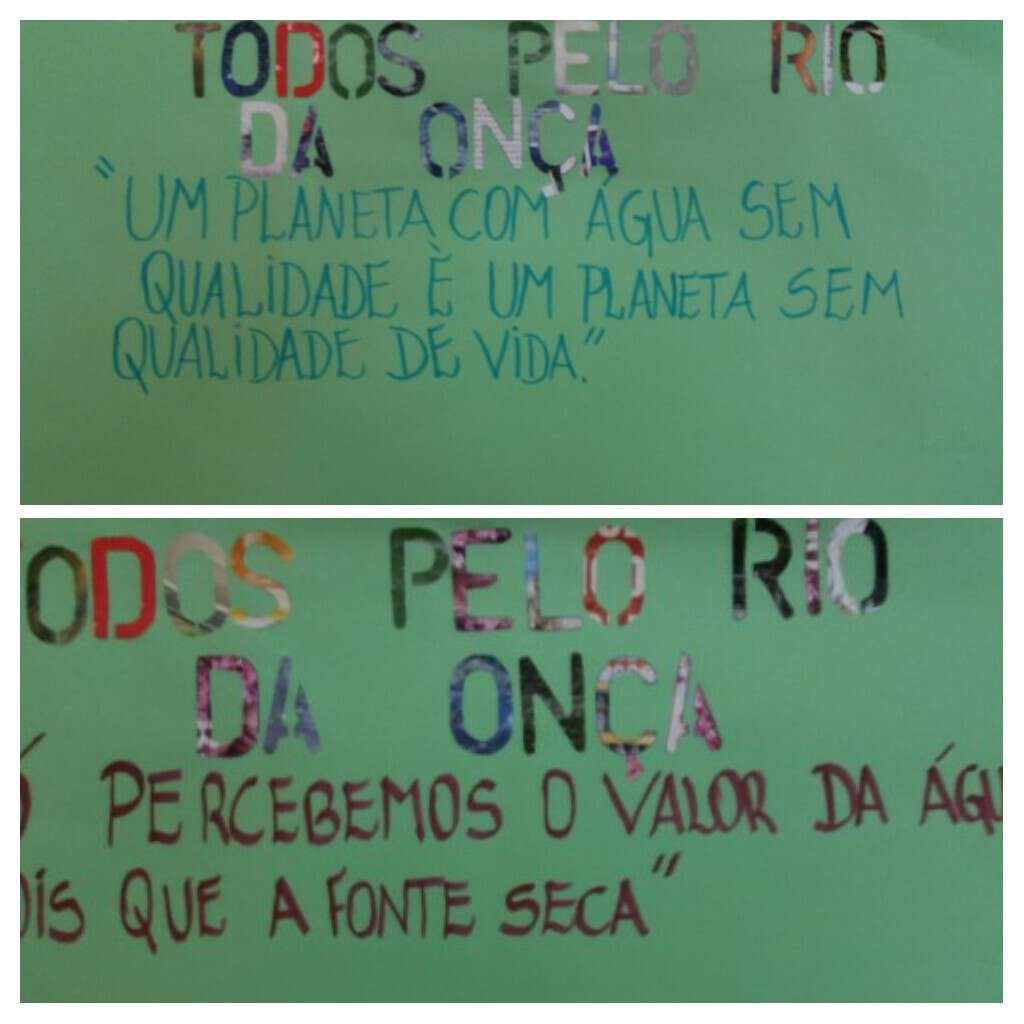 TODOS PELO RIO
DA ONÇA
"UM PLANETA COM ÁGUA SEM
QUALIDADE È UM PLANETA SEM
QUALIDADE DE VIDA."
ODOS PELO RIO
DA ONÇA
Ó PERCEBEMOS O VALOR DA ÁGU
OIS QUE A FONTE SECA"